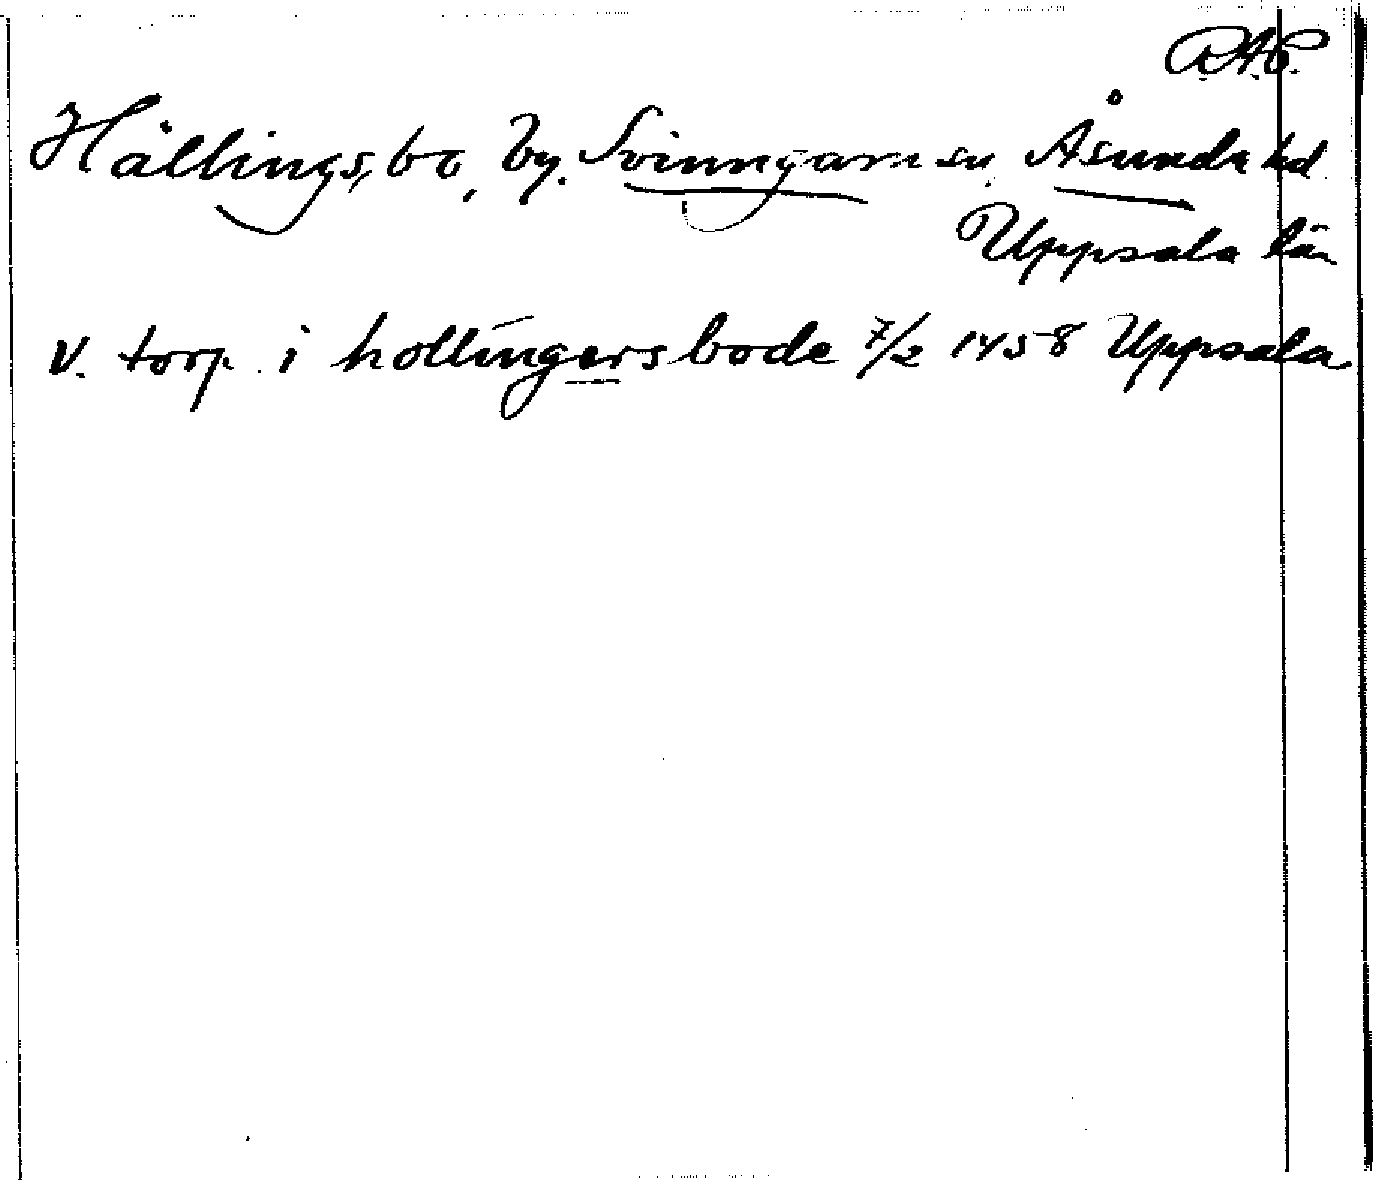 R.A.P.
Hällingsbo, by. Svinngarn sn Åsunda hd
Uppsala län
V. torp. i hollingersbode 7/2 1458 Uppsala